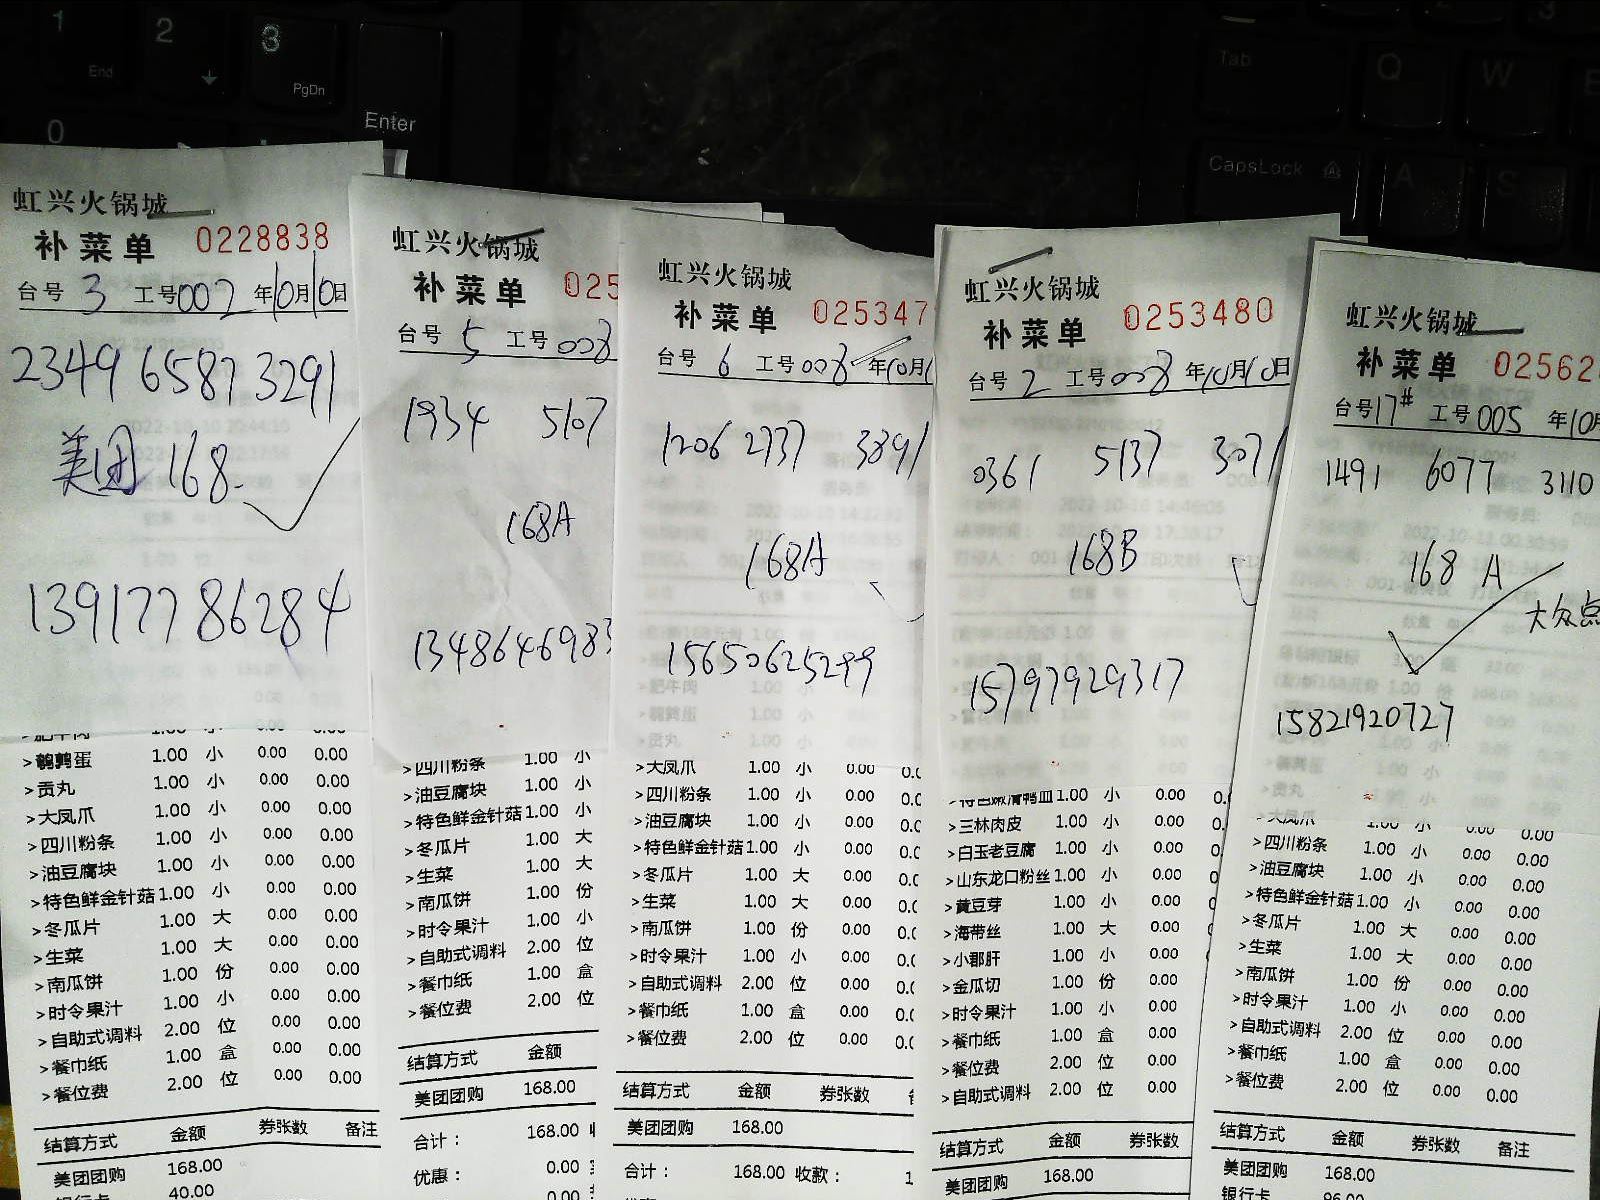 1
End
2
3
PgDn
0
Enter
Tab
Q
W
CapsLock
A
S
虹兴火锅城
补菜单 0228838
台号 3 工号002 年10月10日
2349 6587 3291
美团 168
13917786284
>鹌鹑蛋 1.00 小 0.00 0.00
>贡丸 1.00 小 0.00 0.00
>大凤爪 1.00 小 0.00 0.00
>四川粉条 1.00 小 0.00 0.00
>油豆腐块 1.00 小 0.00 0.00
>特色鲜金针菇1.00 小 0.00 0.00
>冬瓜片 1.00 大 0.00 0.00
>生菜 1.00 大 0.00 0.00
>南瓜饼 1.00 份 0.00 0.00
>时令果汁 1.00 小 0.00 0.00
>自助式调料 2.00 位 0.00 0.00
>餐巾纸 1.00 盒 0.00 0.00
>餐位费 2.00 位 0.00 0.00
结算方式 金额 券张数 备注
美团团购 168.00
银行卡 40.00
虹兴火锅城
补菜单 025
台号 5 工号008
1934 5107
168A
1348646983
>四川粉条 1.00 小
>油豆腐块 1.00 小
>特色鲜金针菇1.00 小
>冬瓜片 1.00 大
>生菜 1.00 大
>南瓜饼 1.00 份
>时令果汁 1.00 小
>自助式调料 2.00 位
>餐巾纸 1.00 盒
>餐位费 2.00 位
结算方式 金额
美团团购 168.00
合计： 168.00
优惠： 0.00
0.00
虹兴火锅城
补菜单 025347
台号 6 工号008 年10月1
1206 2737 3891
168A
15650625299
>大凤爪 1.00 小 0.00
>四川粉条 1.00 小 0.00
>油豆腐块 1.00 小 0.00
>特色鲜金针菇1.00 小 0.00
>冬瓜片 1.00 大 0.00
>生菜 1.00 大 0.00
>南瓜饼 1.00 份 0.00
>时令果汁 1.00 小 0.00
>自助式调料 2.00 位 0.00
>餐巾纸 1.00 盒 0.00
>餐位费 2.00 位 0.00
结算方式 金额 券张数
美团团购 168.00
合计： 168.00 收款： 1
虹兴火锅城
补菜单 0253480
台号 2 工号008 年10月10日
0361 5137 3071
168B
15797929317
>特色嫩滑鸭血1.00 小 0.00
>三林肉皮 1.00 小 0.00
>白玉老豆腐 1.00 小 0.00
>山东龙口粉丝1.00 小 0.00
>黄豆芽 1.00 小 0.00
>海带丝 1.00 大 0.00
>小郡肝 1.00 小 0.00
>金瓜切 1.00 份 0.00
>时令果汁 1.00 小 0.00
>餐巾纸 1.00 盒 0.00
>餐位费 2.00 位 0.00
>自助式调料 2.00 位 0.00
结算方式 金额 券张数
美团团购 168.00
虹兴火锅城
补菜单 02562
台号17# 工号005 年10月
1491 6077 3110
168 A
大众点
15821920727
>大凤爪 1.00 小 0.00 0.00
>四川粉条 1.00 小 0.00 0.00
>油豆腐块 1.00 小 0.00 0.00
>特色鲜金针菇1.00 小 0.00 0.00
>冬瓜片 1.00 大 0.00 0.00
>生菜 1.00 大 0.00 0.00
>南瓜饼 1.00 份 0.00 0.00
>时令果汁 1.00 小 0.00 0.00
>自助式调料 2.00 位 0.00 0.00
>餐巾纸 1.00 盒 0.00 0.00
>餐位费 2.00 位 0.00 0.00
结算方式 金额 券张数 备注
美团团购 168.00
银行卡 96.00